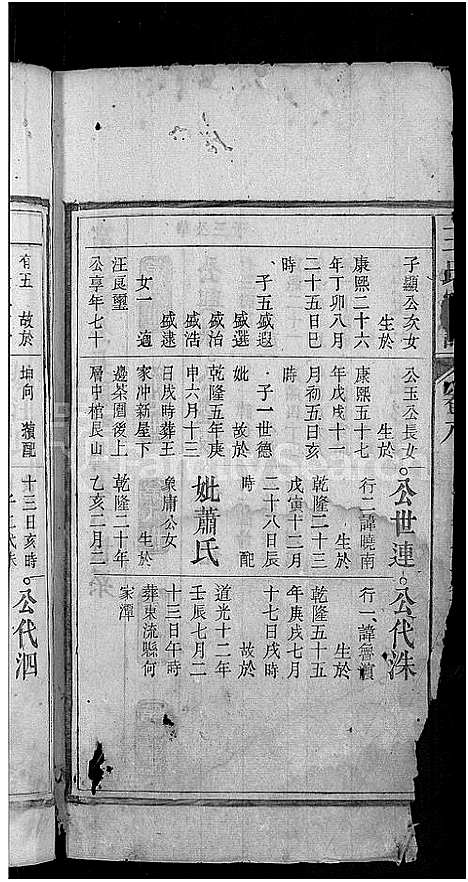 子顯公次女
生於
康熙二十六
年丁卯八月
二十五日巳
時
子五盛遐
盛選
盛治
盛浩
盛逮
女一適
汪良璽
公享年七十
公玉公長女
生於
康熙五十七
年戊戌十一
月初五日亥
時
子一世德
妣 故於
乾隆五年庚
申六月十三
日戌時葬王
家冲新屋下
邊茶園後上
層中棺艮山
公世連
行二諱曉南
生於
乾隆二十三
戊寅十二月
二十八日辰
時 配
妣蕭氏
象庸公女
生於
乾隆二十年
乙亥二月二
公代洙
行一諱魯濱
生於
乾隆五十五
年庚戌七月
十七日戌時
故於
道光十二年
壬辰七月二
十三日午時
葬東流縣何
家潭
有五 故於
坤向
十三日亥時
公代泗